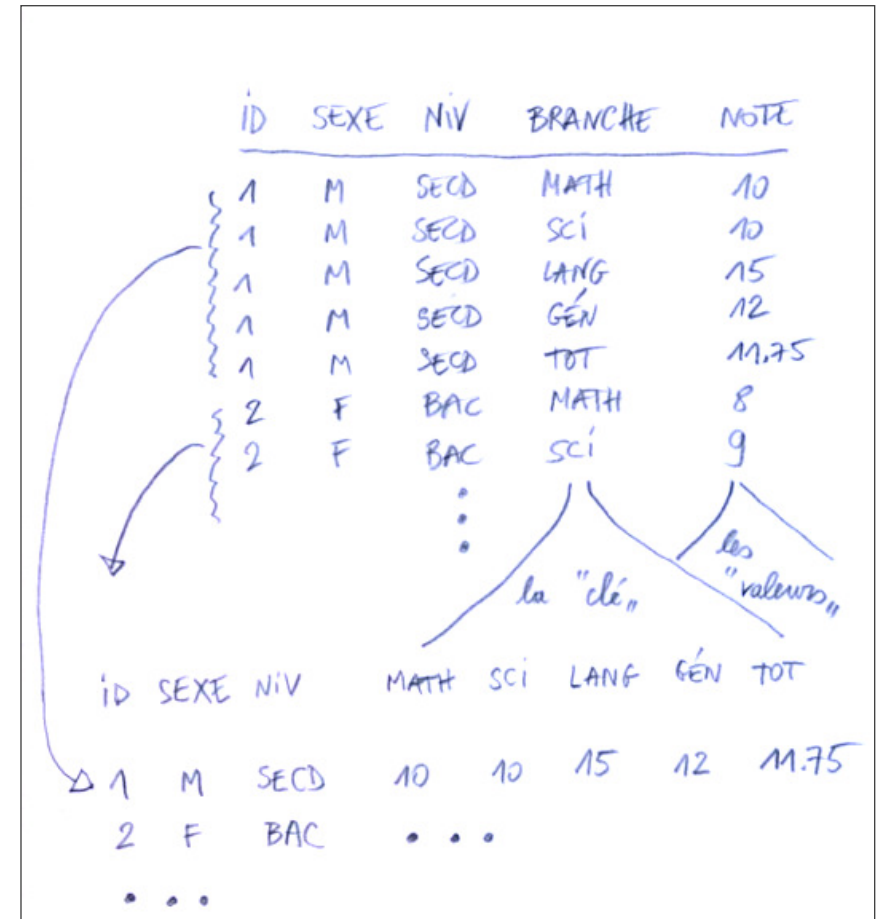 ID SEXE NIV BRANCHE NOTE
1 M SECD MATH 10
1 M SECD SCI 10
1 M SECD LANG 15
1 M SECD GÉN 12
1 M SECD TOT 11.75
2 F BAC MATH 8
2 F BAC SCI 9
la "clé" les "valeurs"
ID SEXE NIV MATH SCI LANG GÉN TOT
1 M SECD 10 10 15 12 11.75
2 F BAC ...
...